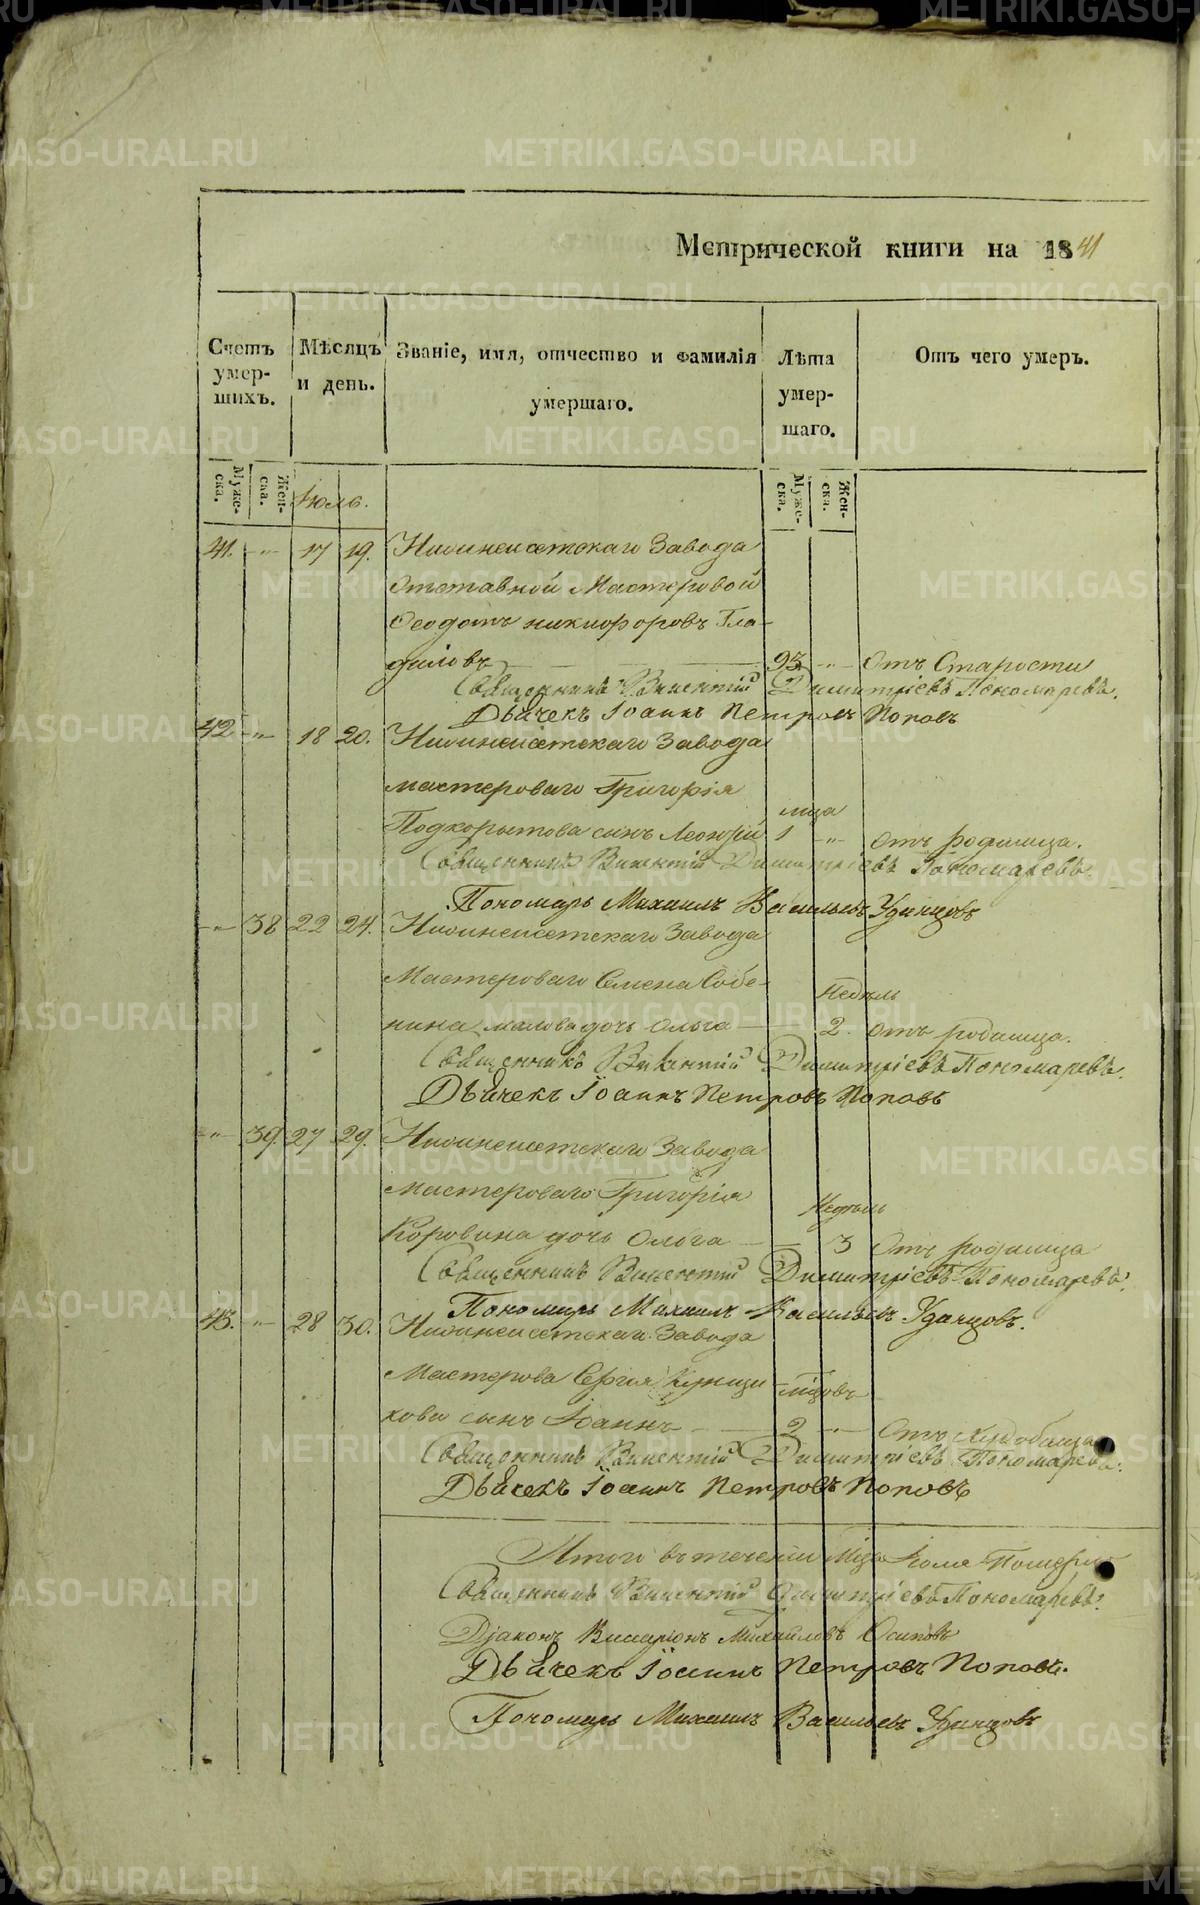 Метрической книги на 1841
Счетъ умер- шихъ.
Мѣсяцъ и день.
Званіе, имя, отчество и фамилія умершаго.
Лѣта умер- шаго.
Отъ чего умеръ.
Муже- ска.
Жен- ска.
Іюль.
Муже- ска.
Жен- ска.
41. -"- 17 19. Нижнеисетскаго Завода
Отставной Мастеровой
Ѳеодотъ Никифоровъ Гла-
диловъ 93 -"- Отъ Старости
Священникъ Викентій Димитріевъ Пономаревъ.
Дьячекъ Іоаннъ Петровъ Поповъ
42 -"- 18 20. Нижнеисетскаго Завода
мастероваго Григорія
мца
Подкорытова сынъ Леонтій 1 -"- отъ родимца.
Священникъ Викентій Димитріевъ Пономаревъ
Пономарь Михаилъ Васильевъ Удинцовъ
-"- 38 22 24. Нижнеисетскаго Завода
Мастероваго Семена Собе-
Недѣль
нина дочь Ольга 2. отъ родимца.
Священникъ Викентій Димитріевъ Пономаревъ.
Дьячекъ Іоаннъ Петровъ Поповъ
-"- 39 27 29. Нижнеисетскаго Завода
мастероваго Григорія
Недѣль
Коровина дочь Ольга 3 Отъ родимца
Священникъ Викентій Димитріевъ Пономаревъ.
Пономарь Михаилъ Васильевъ Удинцовъ.
43. -"- 28 30. Нижнеисетскаго Завода
Мастерова Сергія
мцовъ
кова сынъ Іоаннъ 2 -"- Отъ
Священникъ Викентій Димитріевъ Пономаревъ.
Дьячекъ Іоаннъ Петровъ Поповъ
Итого въ теченіи Мца Іюля Померло
Священникъ Викентій Димитріевъ Пономаревъ.
Діаконъ Михайловъ Осиповъ
Дьячекъ Іоаннъ Петровъ Поповъ.
Пономарь Михаилъ Васильевъ Удинцовъ
METRIKI.GASO-URAL.RU